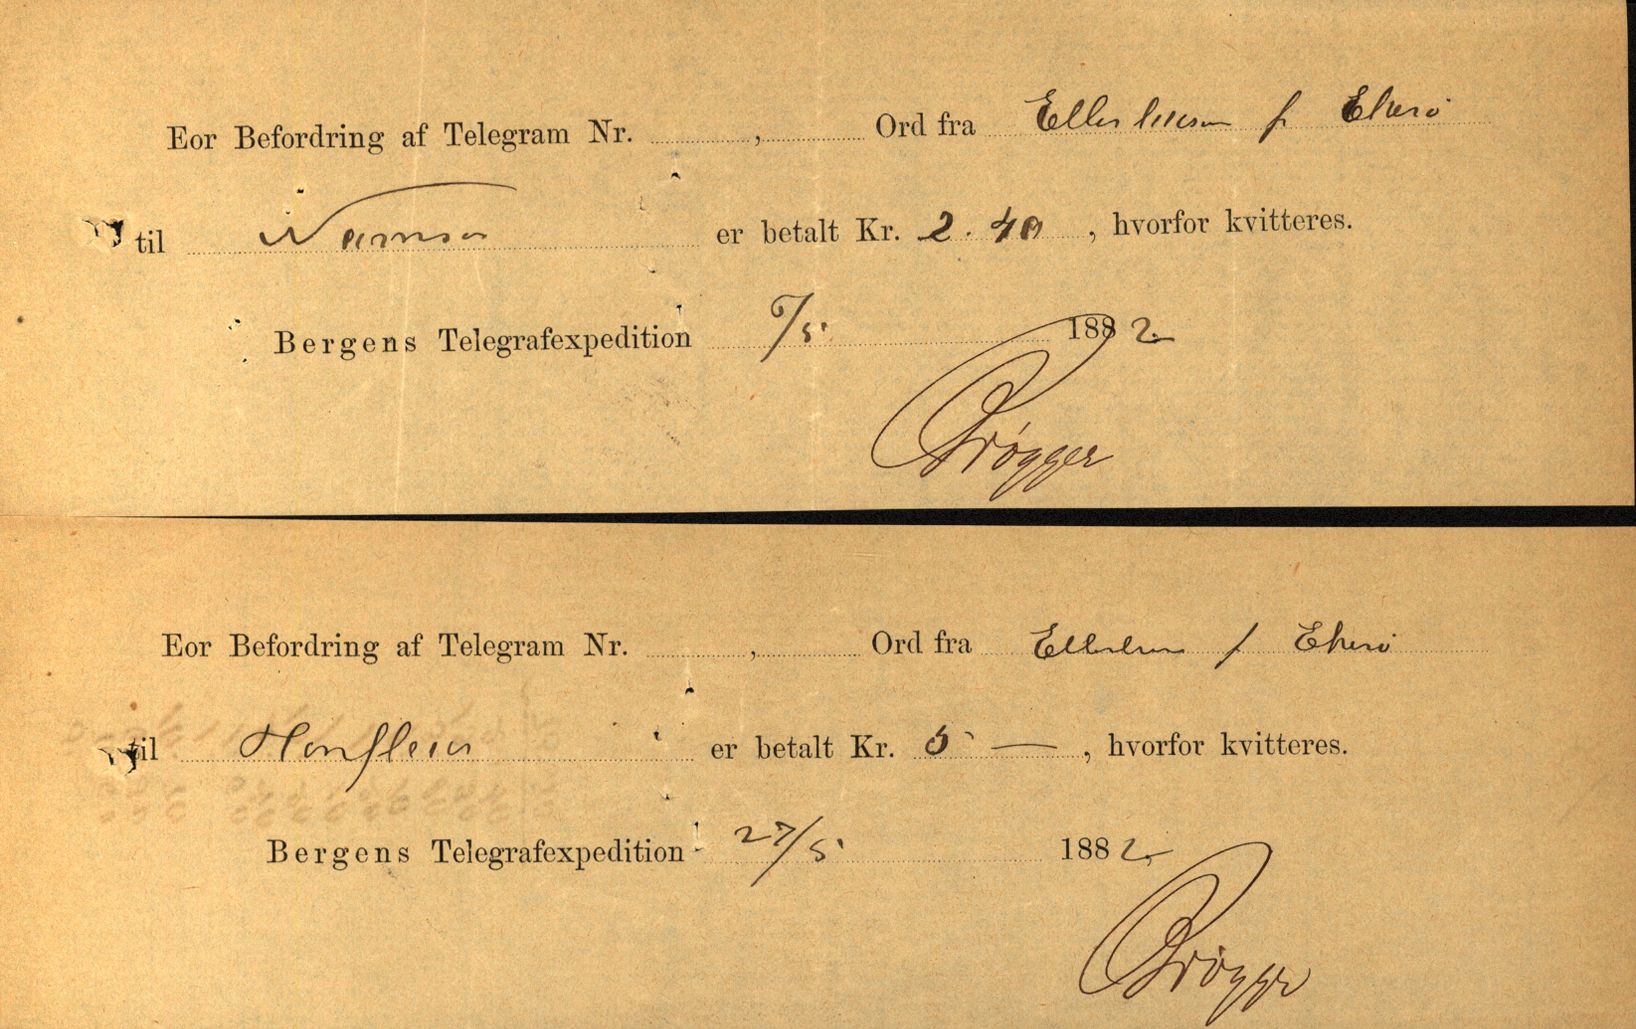 Eor Befordring af Telegram Nr. , Ord fra Ellerhusen f Ekerö
til Namsos er betalt Kr. 2.40, hvorfor kvitteres.
Bergens Telegrafexpedition 6/5 1882.
Brøgger
Eor Befordring af Telegram Nr. , Ord fra Ellerhusen f Ekerö
til Honfleur er betalt Kr. 5 —, hvorfor kvitteres.
Bergens Telegrafexpedition 27/5 1882.
Brøgger